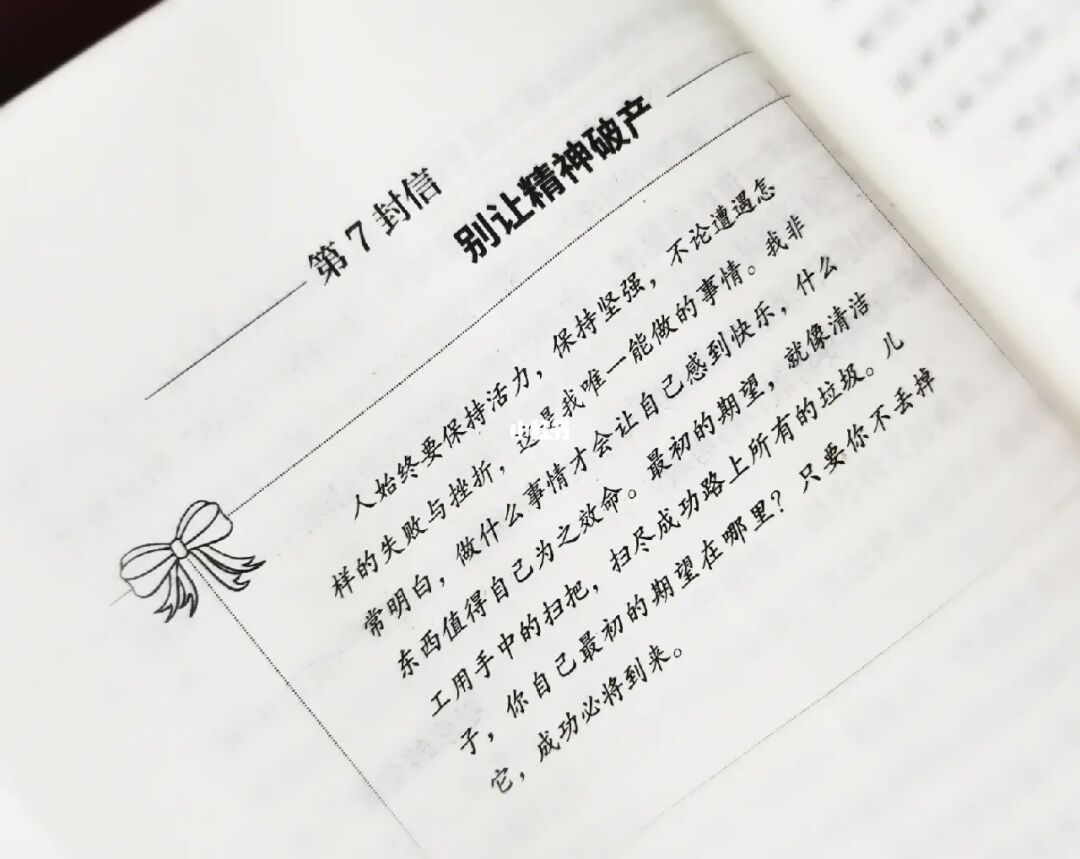 第7封信
别让精神破产
人始终要保持活力，保持坚强，不论遭遇怎
样的失败与挫折，这是我唯一能做的事情。我非
常明白，做什么事情才会让自己感到快乐，什么
东西值得自己为之效命。最初的期望，就像清洁
工用手中的扫把，扫尽成功路上所有的垃圾。儿
子，你自己最初的期望在哪里？只要你不丢掉
它，成功必将到来。
小红书